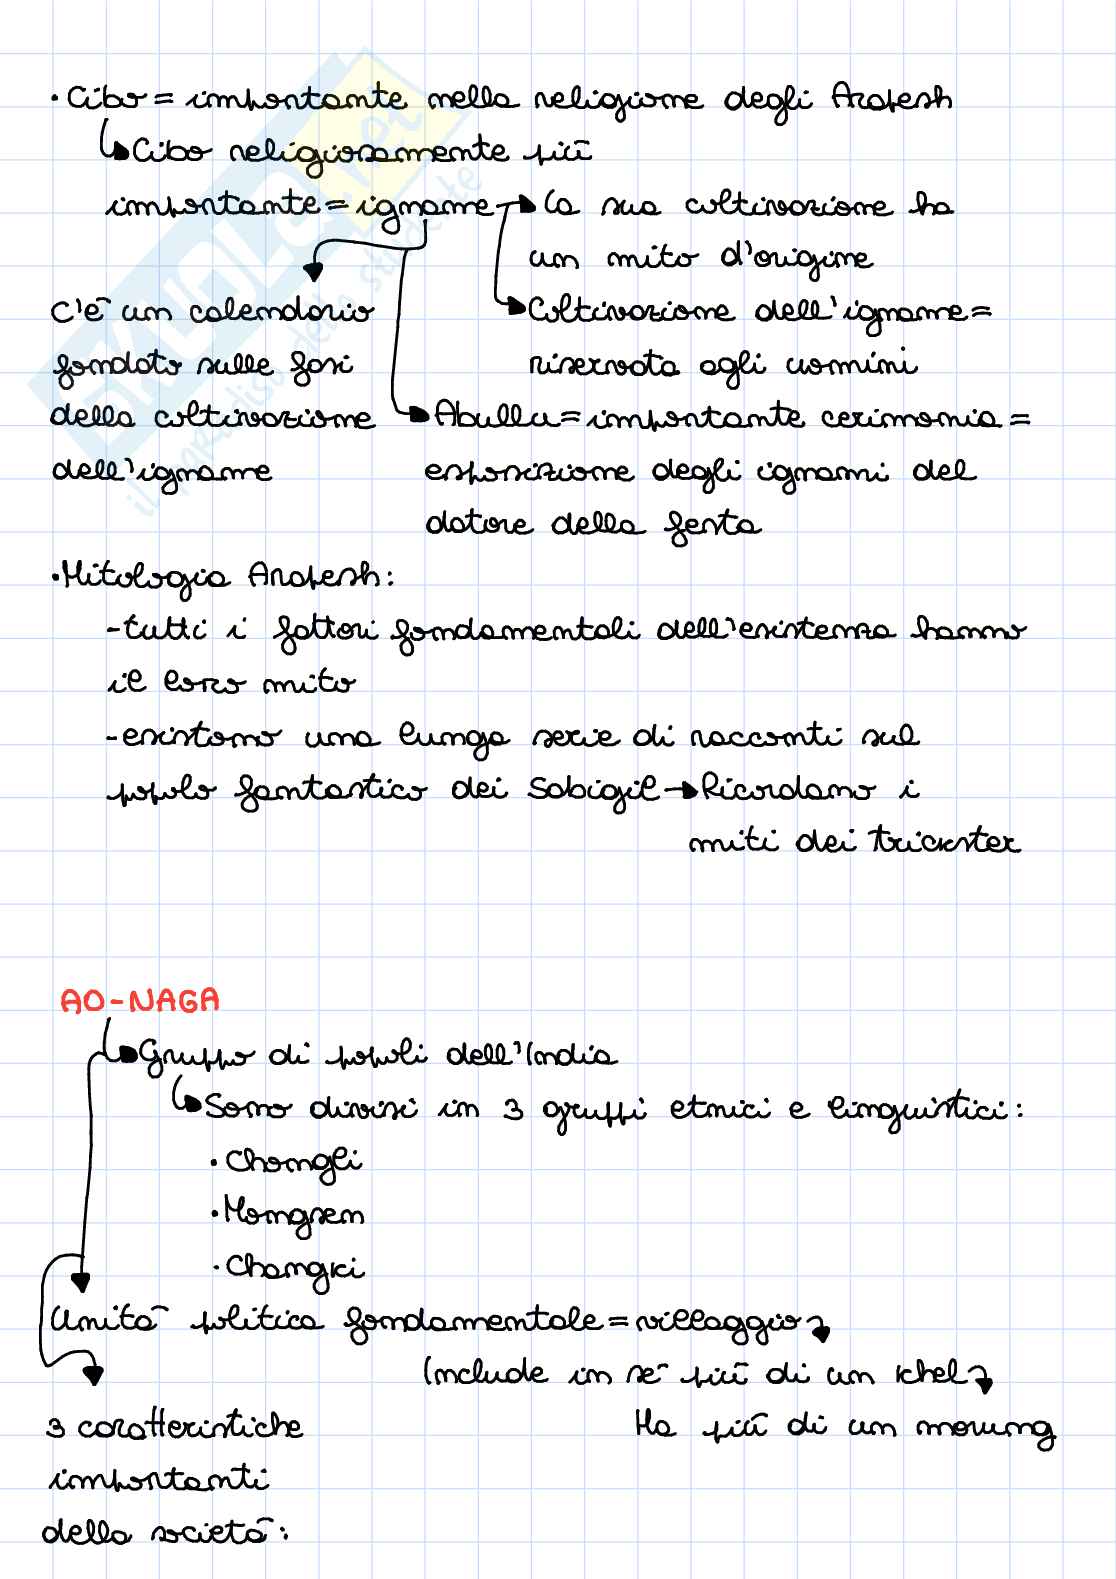 • Cibo = importante nella religione degli Arapesh
Cibo religiosamente più
importante = igname → la sua coltivazione ha
un mito d'origine
C'è un calendario
fondato sulle fasi
della coltivazione
dell'igname
Coltivazione dell'igname =
riservata agli uomini
Abullu = importante cerimonia =
esposizione degli ignami del
datore della festa
• Mitologia Arapesh:
- tutti i fattori fondamentali dell'esistenza hanno
il loro mito
- esistono una lunga serie di racconti sul
popolo fantastico dei Sabigil → Ricordano i
miti dei trickster
AO-NAGA
Gruppo di popoli dell'India
Sono divisi in 3 gruppi etnici e linguistici:
• Chongli
• Mongsen
• Changki
Unità politica fondamentale = villaggio
Include in sé più di un khel
Ha più di un morung
3 caratteristiche
importanti
della società:
SKUOLA.net
il paradiso dello studente